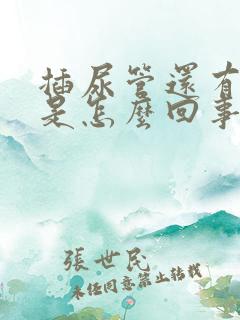 插尿管還有
是怎麼回事
張世民
未經同意禁止轉載